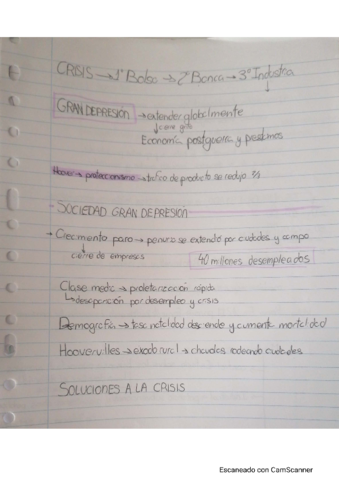 CRISIS → 1º Bolsa → 2º Banca → 3º Industria
GRAN DEPRESIÓN → extender globalmente
↳ cierre
Economía postguerra y préstamos
Hoover → proteccionismo → tráfico de producto se redujo
- SOCIEDAD GRAN DEPRESIÓN:
→ Crecimiento paro → penuria se extendió por ciudades y campo
↳ cierre de empresas 40 millones desempleados
Clase media → proletarización rápida
↳ desaparición por desempleo y crisis
Demografía → tasa natalidad desciende y aumenta mortalidad
Hoovervilles → exodo rural → chavolas rodeando ciudades
SOLUCIONES A LA CRISIS
Escaneado con CamScanner